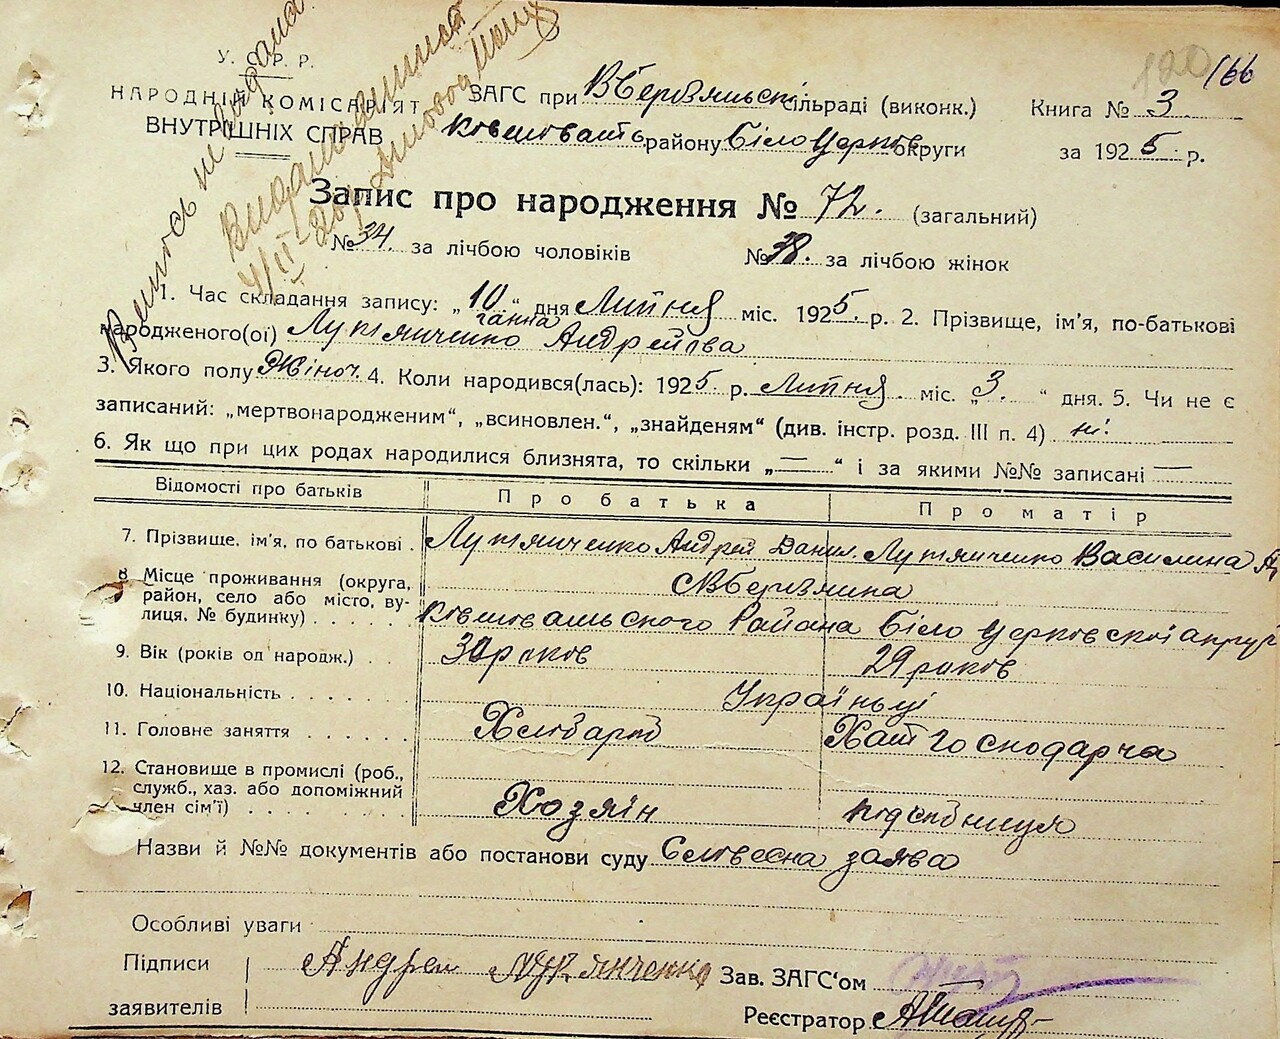 У. С. Р. Р.
НАРОДНІЙ КОМІСАРІЯТ
ВНУТРІШНІХ СПРАВ
120 166
ЗАГС при В Березянські сільраді (виконк.) Книга № 3
району Біло Церков. округи за 1925 р.
Запис про народження № 72. (загальний)
№ 34. за лічбою чоловіків № 38. за лічбою жінок
1. Час складання запису: „10“ дня Липня міс. 1925. р. 2. Прізвище, ім'я, по-батькові
ганна
народженого(ої) Лукянченко Андреївa
3. Якого полу Жіноч. 4. Коли народився(лась): 1925. р. Липня міс. „3.“ дня. 5. Чи не є
записаний: „мертвонародженим“, „всиновлен.“, „знайденям“ (див. інстр. розд. III п. 4) ні.
6. Як що при цих родах народилися близнята, то скільки „—“ і за якими №№ записані —
Відомості про батьків Про батька Про матір
7. Прізвище, ім'я, по батькові . Лукянченко Андрей Данил. Лукянченко Василина
8 Місце проживання (округа,
район, село або місто, ву-
лиця, № будинку) . . . . .
района Біло Церковської
9. Вік (років од народж.) . . 30 роков 29 роков
10. Національність . . . . . . Українці
11. Головне заняття . . . . . . Хлібороб Хатн господарча
12. Становище в промислі (роб.,
служб., хаз. або допоміжний
член сім'ї) . . . . . . . . Хозяїн подсобниця
Назви й №№ документів або постанови суду Словесна заява
Особливі уваги
Підписи Андрей Лукянченко Зав. ЗАГС'ом
заявителів
Реєстратор